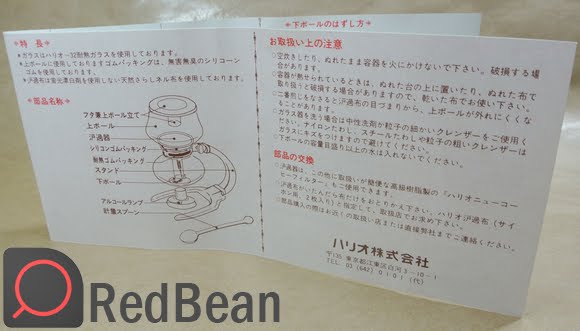 *特 長*
*ガラスはハリオ-32耐熱ガラスを使用しております。
*上ボールに使用しておりますゴムパッキングは、無害無臭のシリコーン
ゴムを使用しております。
*沪過布は蛍光漂白剤を使用しない天然さらしネル布を使用しております。
*部品名称*
フタ兼上ボール立て
上ボール
沪過器
シリコンゴムパッキング
耐熱ゴムパッキング
スタンド
下ボール
アルコールランプ
計量スプーン
*下ボールのはずし方*
お取扱い上の注意
○空炊きしたり、ぬれたまま容器を火にかけないで下さい。破損する場
合があります。
○容器が熱せられているときは、ぬれた台の上に置いたり、ぬれた布で
取り扱うと破損する場合がありますので、乾いた布でお使い下さい。
○二番煎じをなさると沪過布の目づまりから、上ボールが外れにくくな
ることがあります。
○ガラス器を洗う場合は中性洗剤か粒子の細かいクレンザーをご使用く
ださい。ナイロンたわし、スチールたわしや粒子の粗いクレンザーは
ガラスにキズをつけますので避けてください。
○下ボールの容量目盛り以上の水は入れないでください。
部品の交換
○沪過器は、この他に取扱いが簡便な高級樹脂製の「ハリオニューコー
ヒーフィルター」もご使用できます。
○沪過布がいたんだら布だけをおとりかえ下さい。ハリオ沪過布(サイ
ホン用、2枚入り)と指定して、取扱店でお求め下さい。
○部品購入の際はお近くの取扱い店または直接弊社までご連絡ください。
ハリオ株式会社
〒135 東京都江東区白河3-10-1
TEL 03(642)0101(代)
RedBean